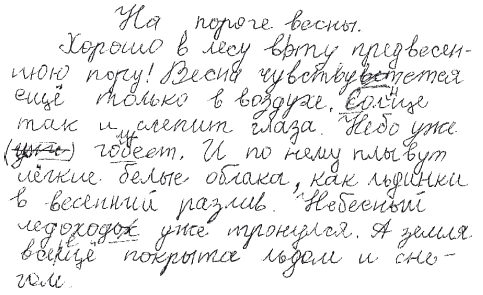 На пороге весны.
Хорошо в лесу врту предвесен-
нюю пору! Весна чувствуется
ещё только в воздухе. Солнце
так и слепит глаза. Небо уже
(уже) голубеет. И по нему плывут
лёгкие белые облака, как льдинки
в весенний разлив. Небесный
ледоход уже тронулся. А земля
вся ещё покрыта льдом и сне-
гом.